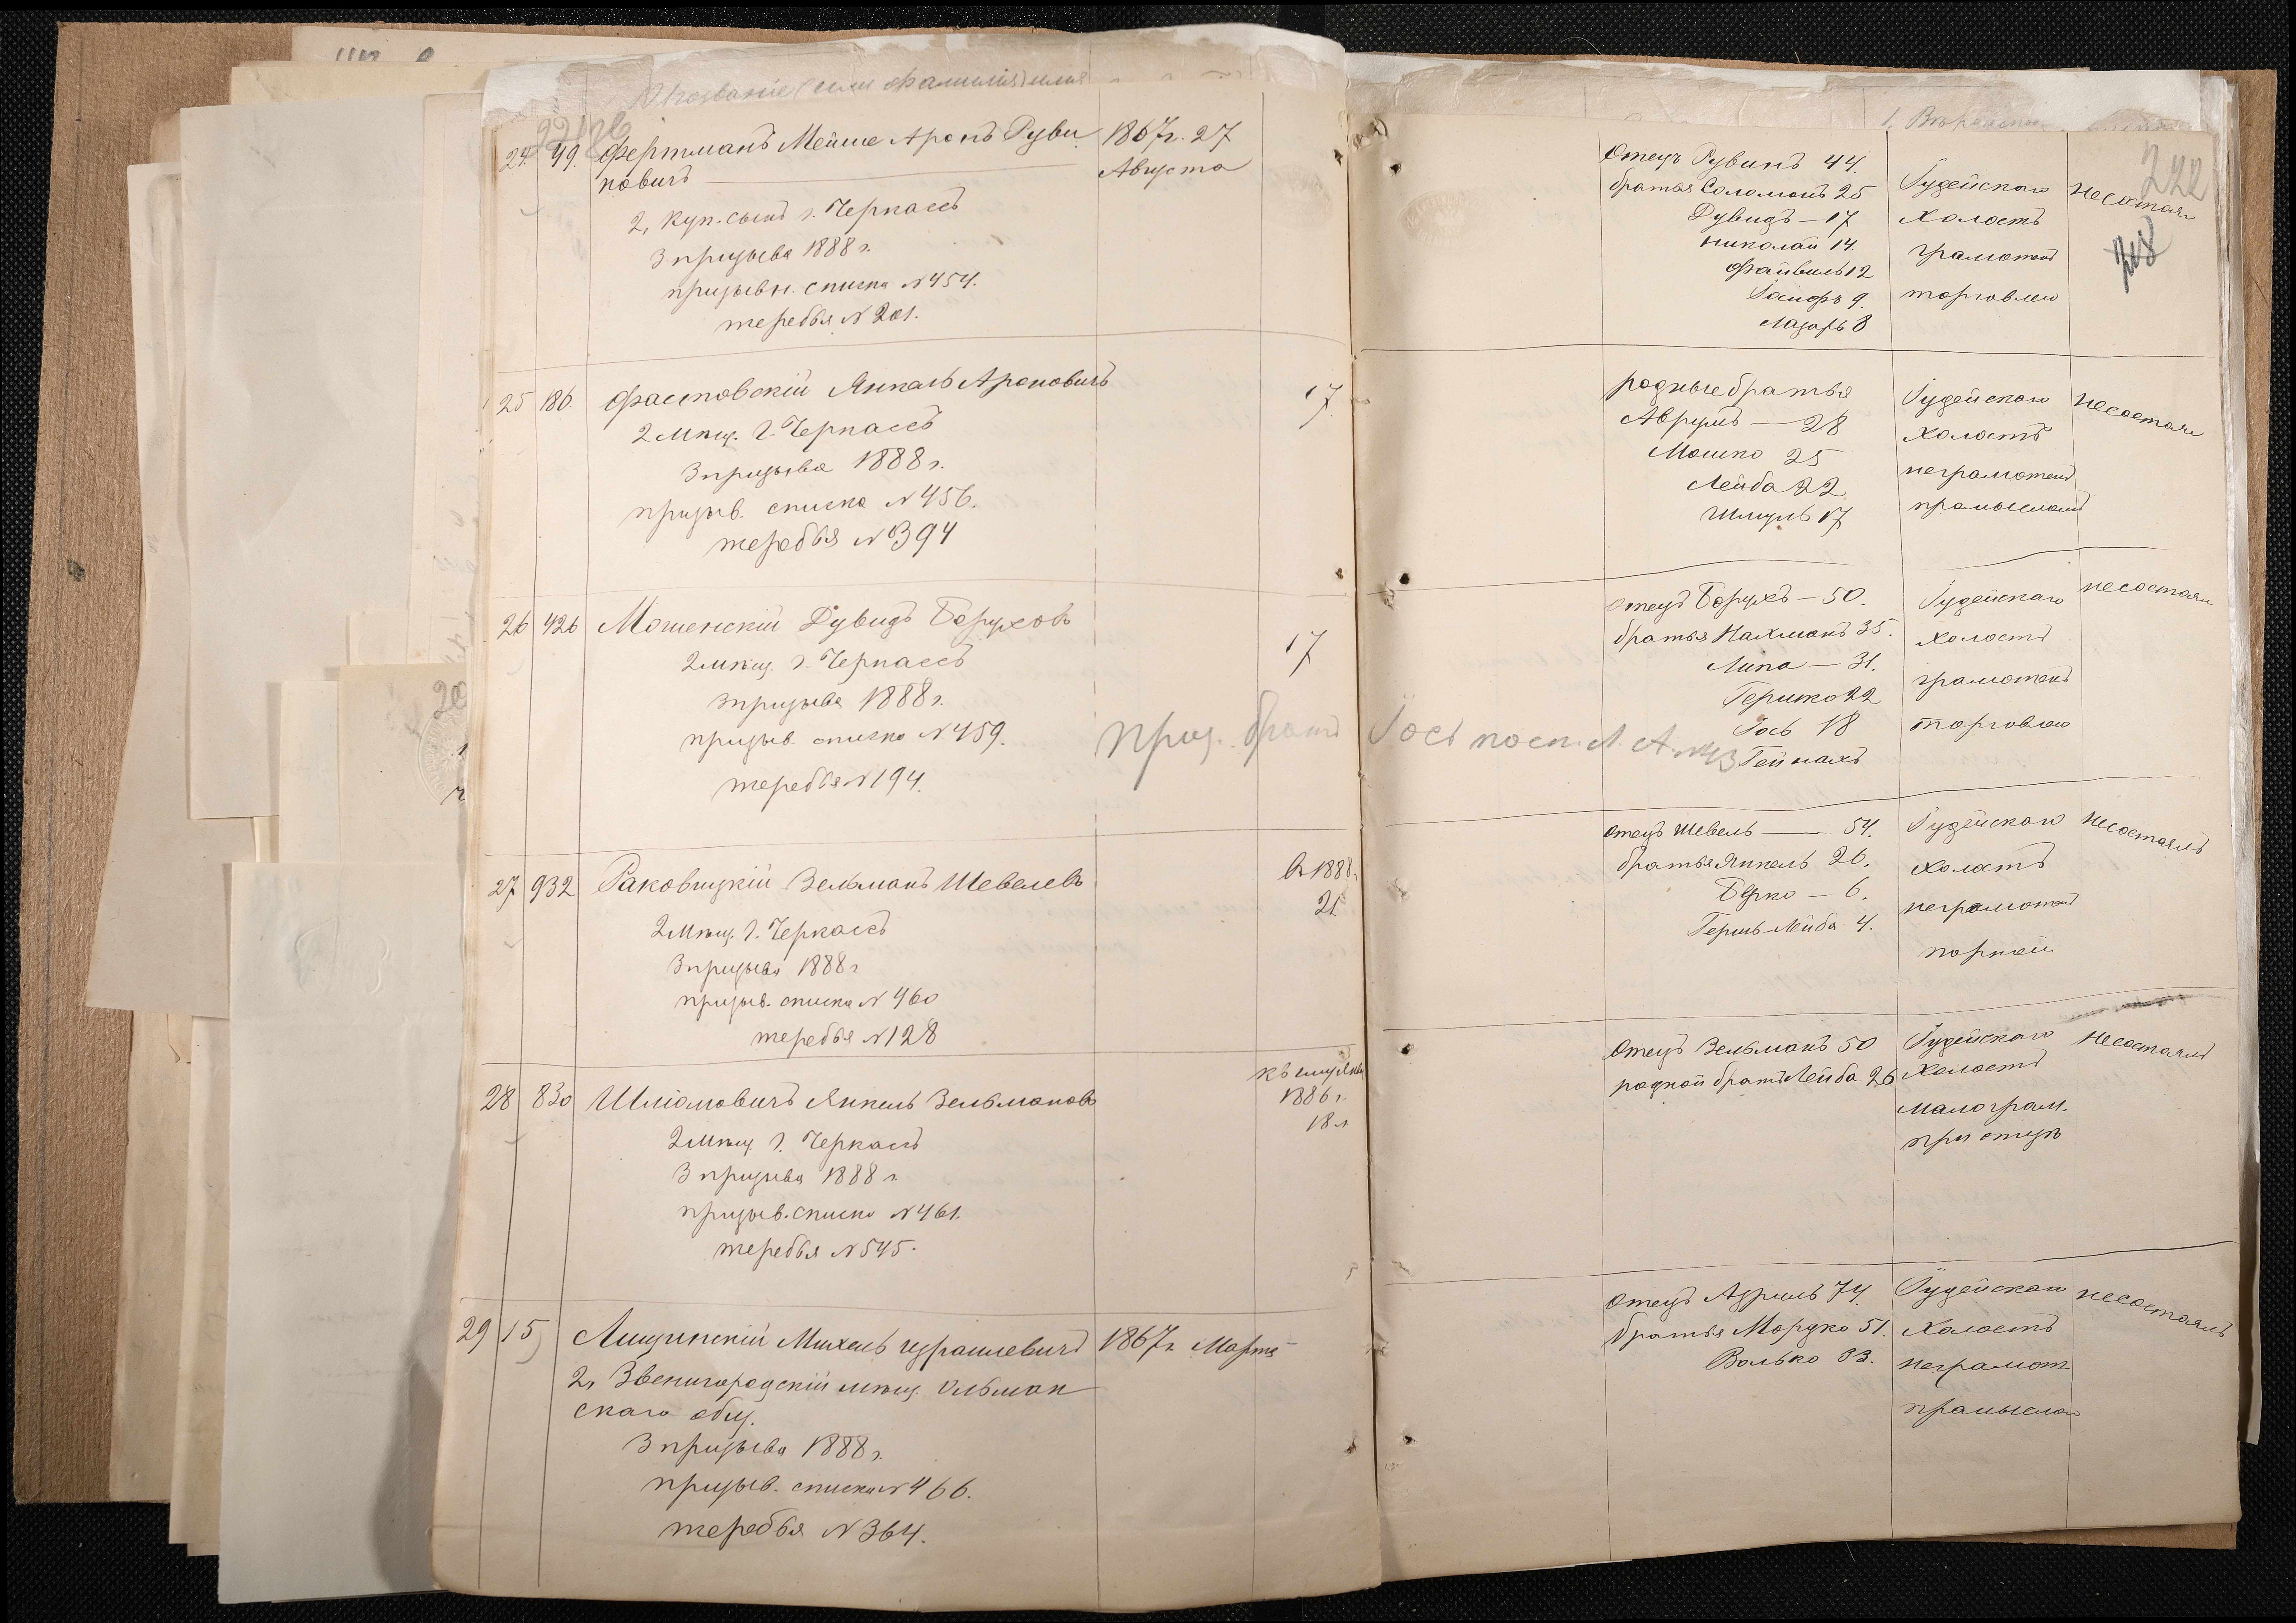 Прозваніе (или фамилія) имя
24. 49. Фертманъ Мейше Аронъ Руви
новичъ
2, Куп. сынъ г. Черкассъ
3 призыва 1888 г.
призывн. списка №454.
жеребья №201.
1867г. 27
Августа
Отецъ Рувинъ 44.
братья Соломонъ 25
Дувидъ — 17
Николай 14.
Файвель 12
Іосифъ 9.
Лазарь 8
Іудейскаго
Холостъ
грамотенъ
торговлею
Несостоял
222
25 186. Фастовскій Янкель Ароновичъ
2 Мѣщ. г. Черкассъ
3 призыва 1888 г.
призыв. списка №456.
жеребья №394
17
родные братья
Аврумъ — 28
Мошко 25
Лейба 22
Шмуль 17
Іудейскаго
Холостъ
неграмотенъ
Несостоял
26 426 Мошенскій Дувидъ Боруховъ
2 мѣщ. г. Черкассъ
3 призыва 1888 г.
призыв. списка №459.
жеребья №194.
17
отецъ Борухъ — 50.
братья Нахманъ 35.
Липа — 31.
Гершко 22
Іось 18
Гейнахъ
Іудейскаго
холостъ
грамотенъ
торговлею
несостоял
27 932 Раковицкій Зельманъ Шевелевъ
2 Мѣщ. г. Черкассъ
3 призыва 1888 г
призыв. списка №460
жеребья №128
въ 1888 г.
21
отецъ Шевель — 54.
братья Янкель 20.
Берко — 6.
Гершъ-Лейба 4.
Іудейскаго
Холостъ
неграмотенъ
портной
Несостоялъ
28 830 Шліомовичъ Янкель Зельмановъ
2 Мѣщ г. Черкассъ
3 призыва 1888 г
призыв. списка №461.
жеребья №545.
1886 г.
18 л
Отецъ Зельманъ 50
родной братъ Лейба 26
Іудейскаго
Холостъ
малограм.
при отцѣ
Несостоялъ
29 15 Лищинскій Михель Израилевичъ
2, Звенигородскій мѣщ. Ольшан
скаго общ.
3 призыва 1888 г.
призыв. списка №466.
жеребья №364.
1867г. Марта
Отецъ Азриль 74.
братья Мордко 51.
Волько 33.
Іудейскаго
Холостъ
неграмот.
несостоялъ